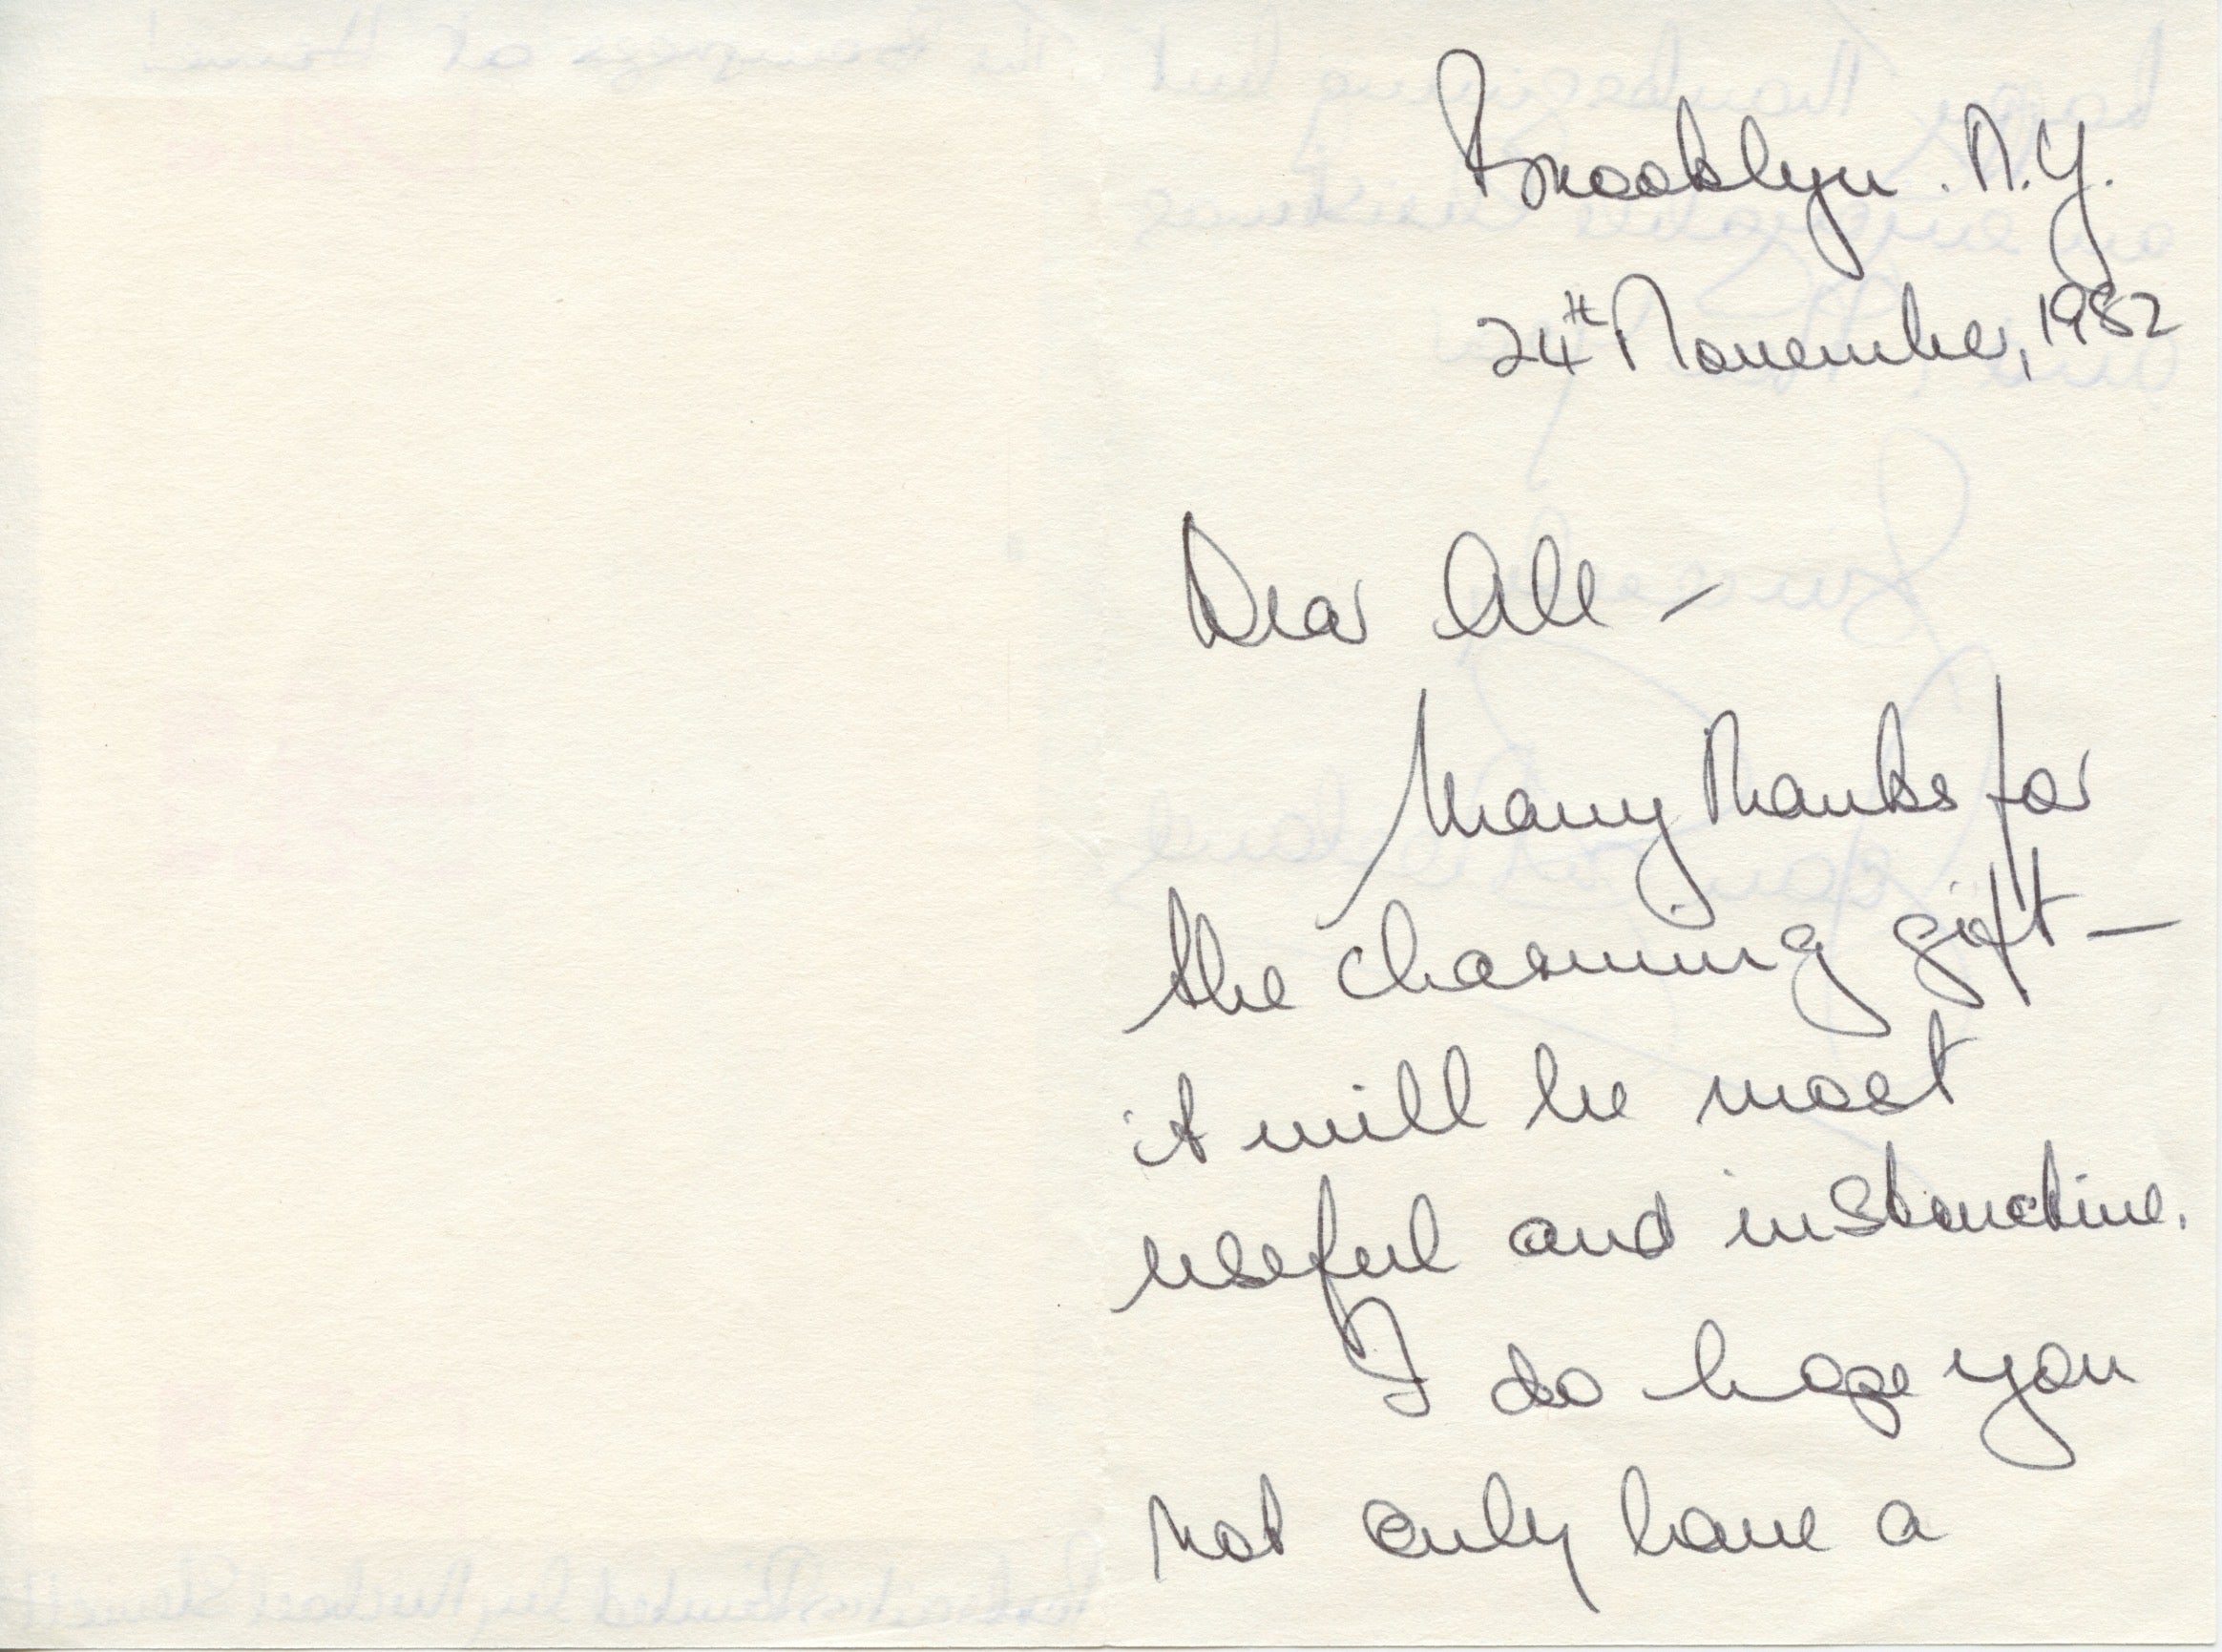 Brooklyn. N.Y.
24th November, 1982
Dear All –
Many thanks for
the charming gift –
it will be most
useful and instructive.
I do hope you
not only have a